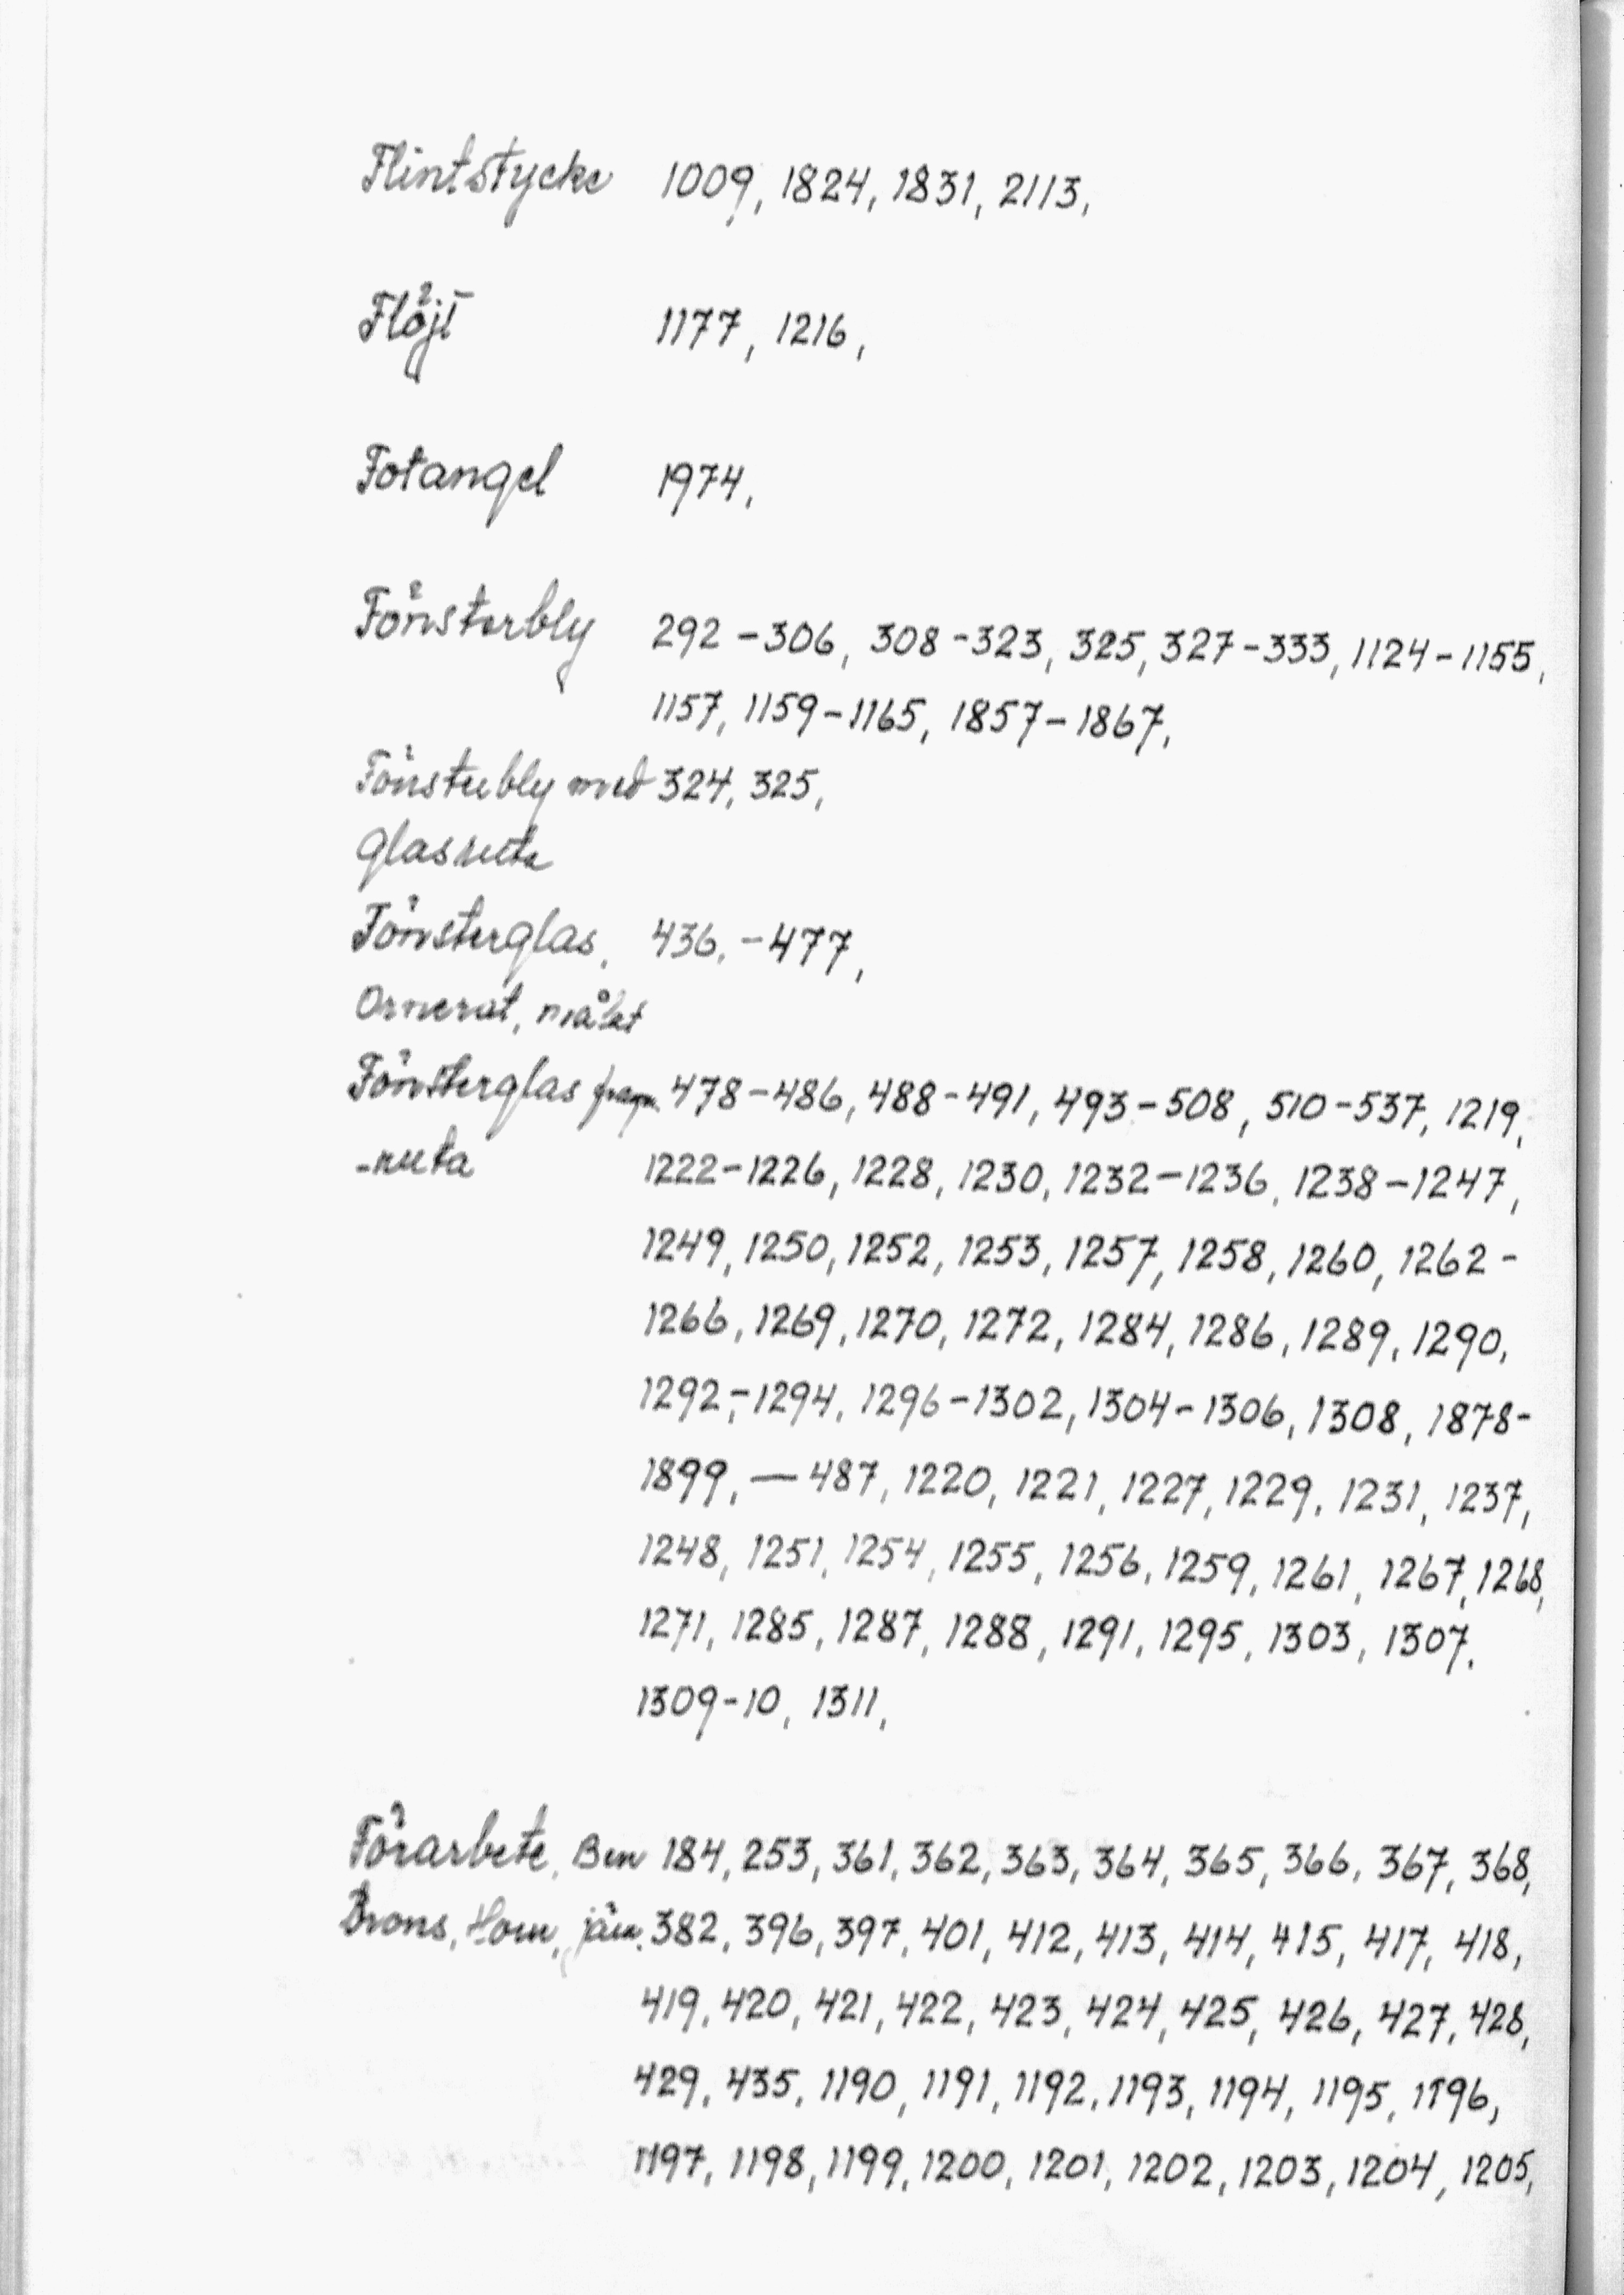 Flintstycke 1009, 1824, 1831, 2113,
Flöjt 1177, 1216,
Fotangel 1974,
Fönsterbly 292-306, 308-323, 325, 327-333, 1124-1155,
1157, 1159-1165, 1857-1867,
Fönsterbly med 324, 325,
glasruta
Fönsterglas, 436,-477,
Ornerat, målat
Fönsterglas fragm. 478-486, 488-491, 493-508, 510-537, 1219,
-ruta 1222-1226, 1228, 1230, 1232-1236, 1238-1247,
1249, 1250, 1252, 1253, 1257, 1258, 1260, 1262-
1266, 1269, 1270, 1272, 1284, 1286, 1289, 1290,
1292,-1294, 1296-1302, 1304-1306, 1308, 1878-
1899, — 487, 1220, 1221, 1227, 1229, 1231, 1237,
1248, 1251, 1254, 1255, 1256, 1259, 1261, 1267, 1268,
1271, 1285, 1287, 1288, 1291, 1295, 1303, 1307,
1309-10, 1311,
Förarbete, Ben 184, 253, 361, 362, 363, 364, 365, 366, 367, 368,
Brons, Horn, järn. 382, 396, 397, 401, 412, 413, 414, 415, 417, 418,
419, 420, 421, 422, 423, 424, 425, 426, 427, 428,
429, 435, 1190, 1191, 1192, 1193, 1194, 1195, 1196,
1197, 1198, 1199, 1200, 1201, 1202, 1203, 1204, 1205,